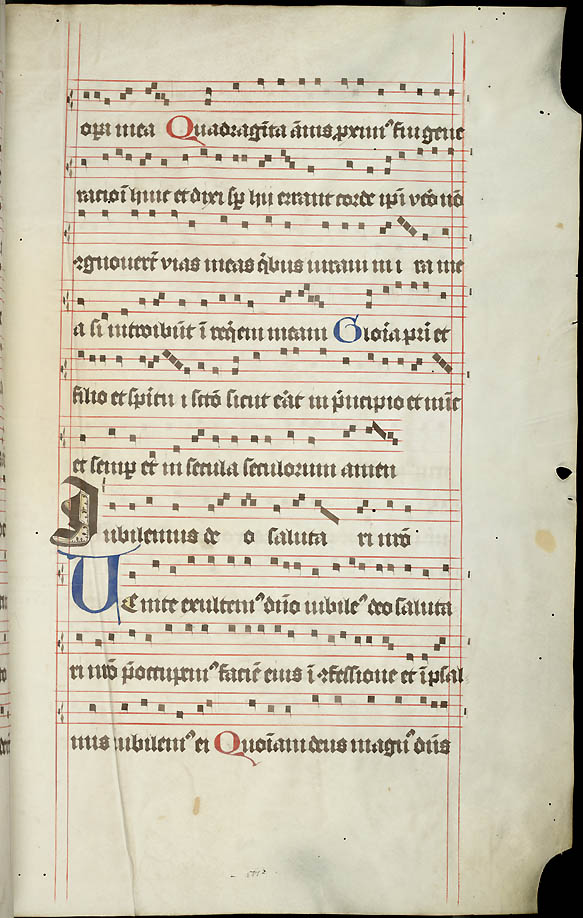 opa mea Quadragīta ānis pximꝰ fui gene
racioī huic et dixi sp hii errant corde ipī v̄o nō
ꝯgnouerūt vias meas qͥbus iuraui in i ra me
a si introibūt ī reqͥem meam Gloīa pr̄i et
filio et spītui scō sicut erāt in pͥncipio et nūc
et semp et in secula seculorum amen
Iubilemus de o saluta ri nrō
Venite exultemꝰ dn̄o iubilemꝰ deo saluta
ri nrō pͦoccupemꝰ faciē eius ī ꝯfessione et ī psal
mis iubilemꝰ ei Quoīam deus magnꝰ dn̄s